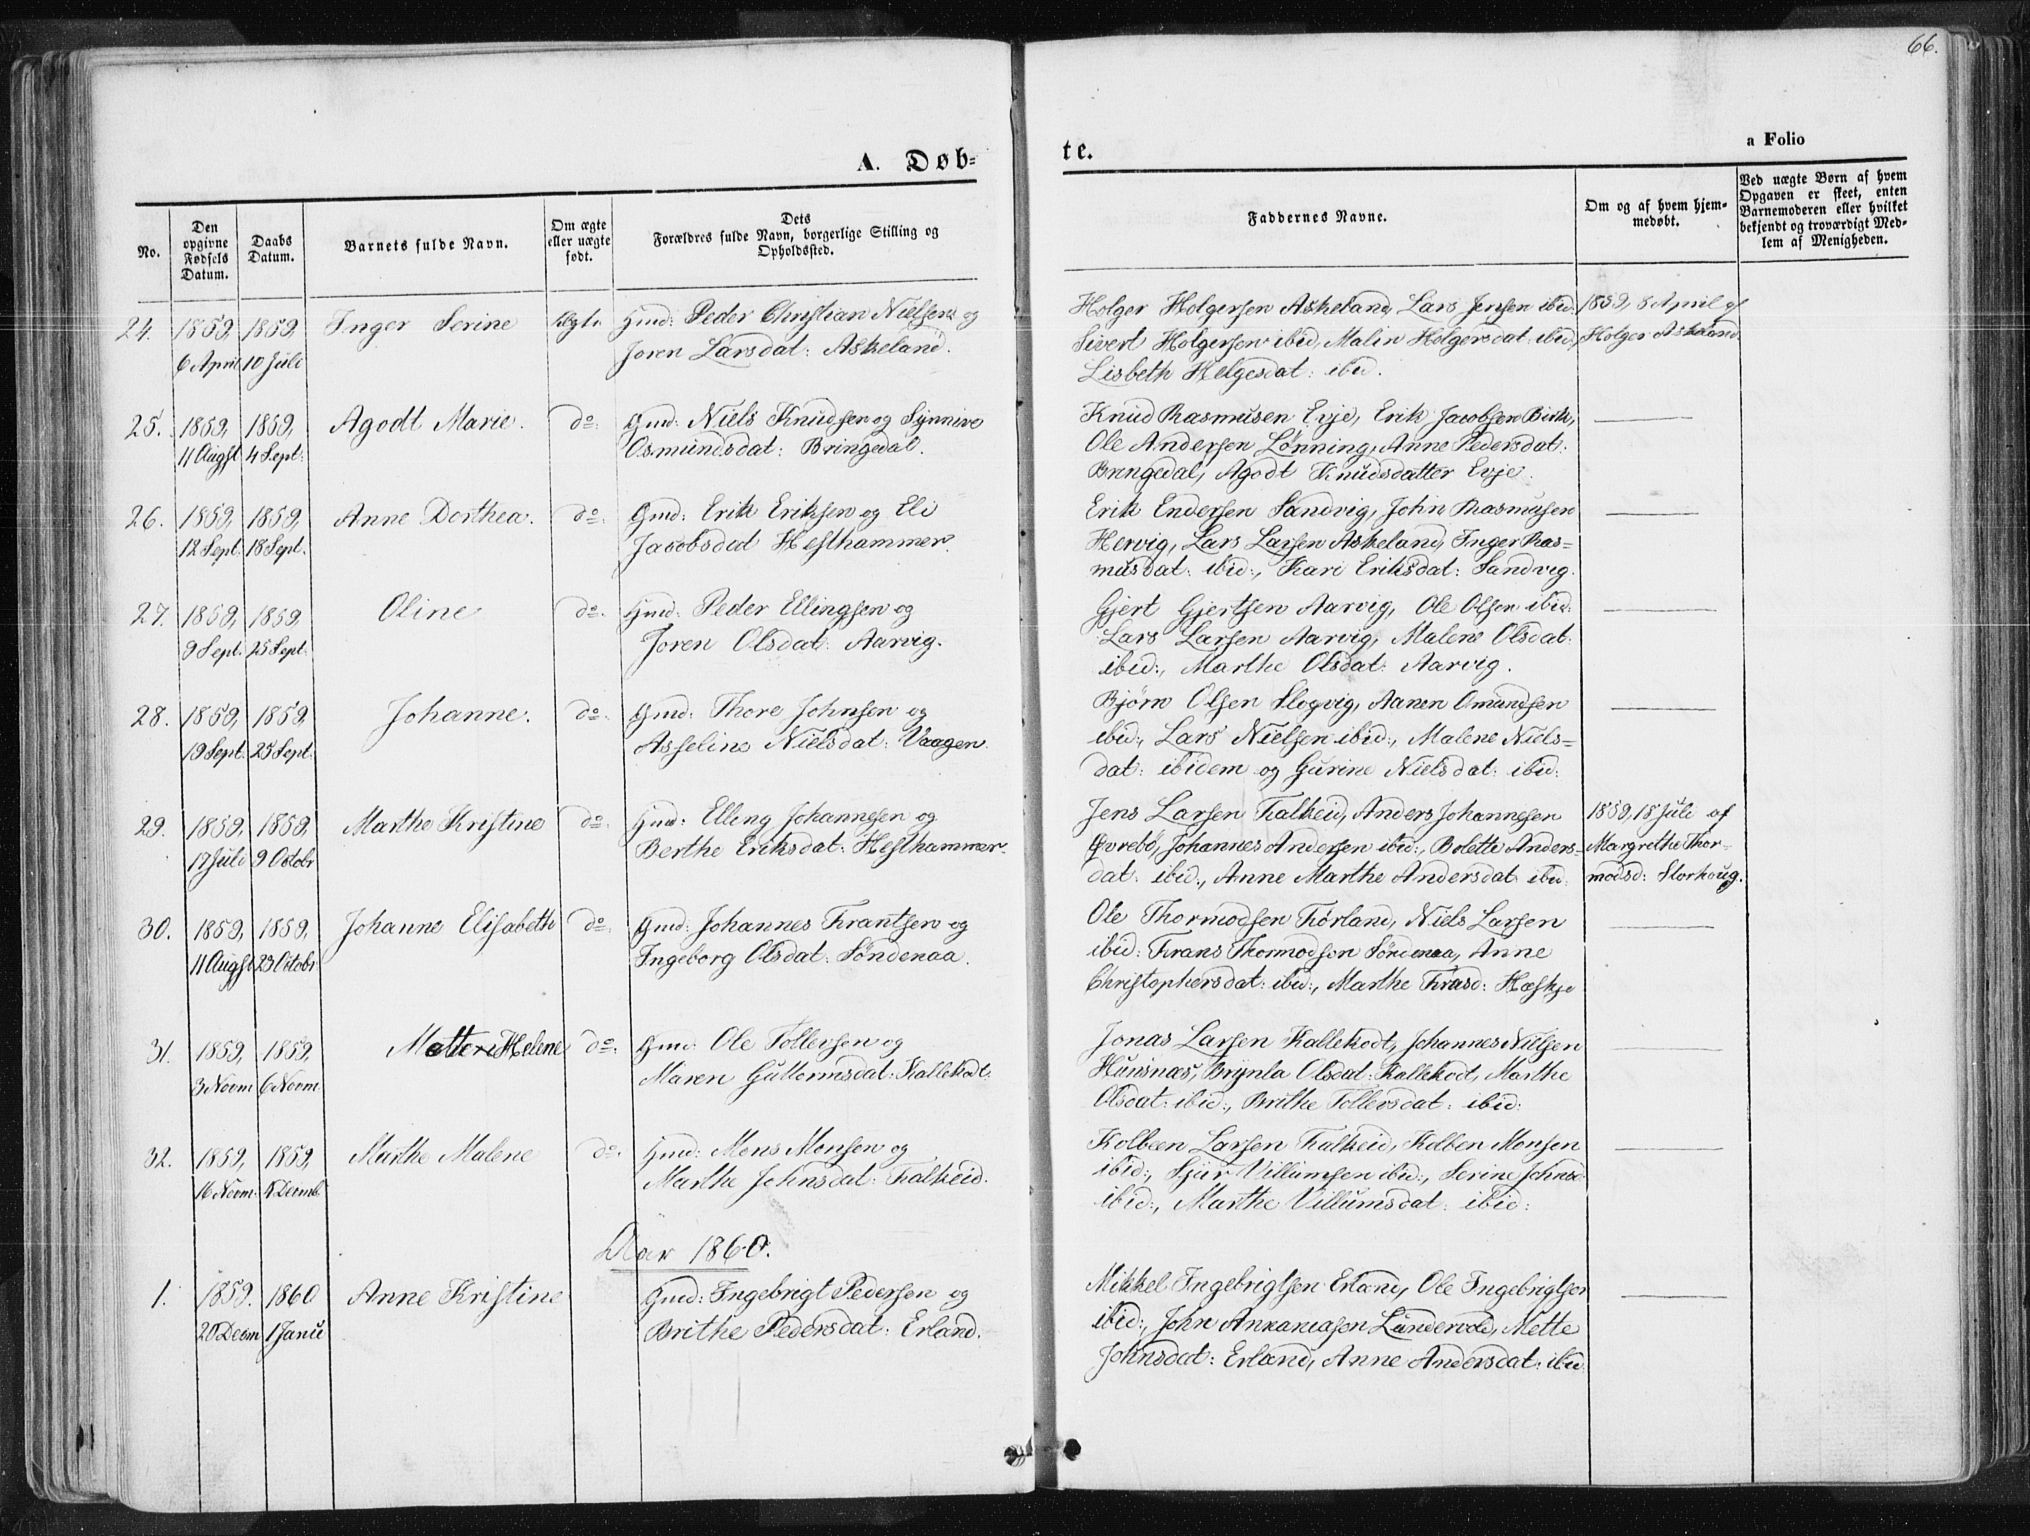 66.
A. Døb=
te.
a Folio
No.
Den opgivne Fødsels Datum.
Daabs Datum.
Barnets fulde Navn.
Om ægte eller uægte født.
Dets Forældres fulde Navn, borgerlige Stilling og Opholdssted.
Faddernes Navne.
Om og af hvem hjem-medøbt.
Ved uægte Børn af hvem Opgaven er skeet, enten Barnemoderen eller hvilket bekjendt og troværdigt Med-lem af Menigheden.
24. 1859, 1859, Inger Serine Ægte Gmd: Peder Christian Nielsen og
6 April 10 Juli Joren Larsdat: Askeland.
Holger Holgersen Askeland, Lars Jensen ibid: 1859, 8 April af
Sivert Holgersen ibid, Malin Holgersdat: ibid, Holger Askeland
Lisbeth Helgesdat: ibid.
25. 1859, 1859, Agodt Marie. do: Gmd: Niels Knudsen og Synnive
11 Augst 4 Sept: Osmundsdat: Bringedal.
Knud Rasmusen Evje, Erik Jacobsen Birk,
Ole Andersen Lønning, Anne Pedersdat:
Bringedal, Agodt Knudsdatter Evje.
26. 1859, 1859, Anne Dorthea. do: Gmd: Erik Eriksen og Eli
12 Sept. 18 Sept. Jacobsdat Hesthammer.
Erik Endersen Sandvig, John Rasmusen
Hervig, Lars Larsen Askeland, Inger Ras=
musdat: ibid:, Kari Eriksdat: Sandvig.
27. 1859, 1859, Oline do. Gmd: Peder Ellingsen og
9 Sept. 25 Sept. Joren Olsdat: Aarvig.
Gjert Gjertsen Aarvig, Ole Olsen ibid:
Lars Larsen Aarvig, Malene Olsdat:
ibid:, Marthe Olsdat: Aarvig.
28. 1859, 1859. Johanne. do. Gmd: Thore Johnsen og
19 Sept. 25 Sept: Asseline Nielsdat: Vaagen.
Bjørn Olsen Slogvig, Aanen Omundsen
ibid:, Lars Nielsen ibid:, Malene Niels=
dat: ibidem og Gurine Nielsdat: ibid:
29. 1859, 1859, Marthe Kristine do: Gmd: Elling Johannesen og
17 Juli 9 Octobr Berthe Eriksdat: Hesthammer.
Jens Larsen Falkeid, Anders Johannesen 1859, 18 Juli af
Øvrebø, Johannes Andersen ibid:, Bolette Anders= Margrethe Thor=
dat: ibid:, Anne Marthe Andersdat ibid modsd: Storhoug.
30. 1859, 1859, Johanne Elisabeth do: Gmd: Johannes Frantsen og
11 Augst 23 Octobr Ingeborg Olsdat: Søndenaa.
Ole Thormodsen Førland, Niels Larsen
ibid: Frans Thormodsen Søndenaa, Anne
Christophersdat: ibid:, Marthe
31. 1859, 1859, Mette Helene do: Gmd: Ole Tollevsen og
3 Novm 6 Novm. Maren Guttormsdat: Kallekodt.
Jonas Larsen Kallekodt, Johannes Nielsen
Huusnæs, Brynla Olsdat: Kallekodt, Marthe
Olsdat: ibid:, Brithe Tollevsdat: ibid:
32. 1859, 1859, Marthe Malene do. Gmd: Mons Monsen og
16 Novm: Decmb. Marthe Johnsdat: Falkeid.
Kolbeen Larsen Falkeid, Kolben Monsen
ibid:, Sjur Villumsen ibid:, Serine Johnsd:
ibid:, Marthe Villumsdat: ibid:
Aar 1860.
1. 1859. 1860 Anne Kristine Gmd: Ingebrigt Pedersen og
20 Decm 1 Janu Brithe Pedersdat: Erland.
Mikkel Ingebrigtsen Erland, Ole Ingebrigtsen
ibid:, John Annaniasen Mette
Johnsdat: Erland, Anne Andersdat: ibid